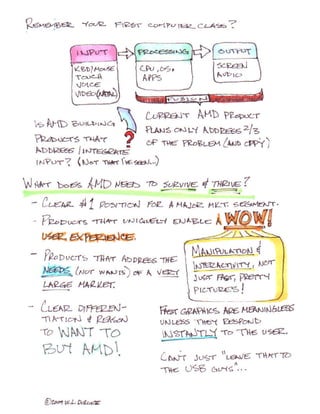 REMEMBER YOUR FIRST COMPUTER CLASS?
INPUT
KBD/MOUSE
TOUCH
VOICE
VIDEO (NATAL)
PROCESSING
CPU, OS,
APPS
OUTPUT
SCREEN
AUDIO
FUSION
IS AMD BUILDING
PRODUCTS THAT
ADDRESS / INTEGRATE
INPUT? (NOT THAT I'VE SEEN...)
?
CURRENT AMD PRODUCT
PLANS ONLY ADDRESS 2/3
OF THE PROBLEM (AND OPP'Y)
WHAT DOES AMD NEED TO SURVIVE & THRIVE?
- CLEAR #1 POSITION FOR A MAJOR MKT. SEGMENT.
- PRODUCTS THAT UNIQUELY ENABLE A WOW!
USER EXPERIENCE.
- PRODUCTS THAT ADDRESS THE
NEEDS (NOT WANTS) OF A VERY
LARGE MARKET.
MANIPULATION &
INTERACTIVITY, NOT
JUST FAST, PRETTY
PICTURES!
- CLEAR DIFFEREN-
TIATION & REASON
TO WANT TO
BUY AMD!
FAST GRAPHICS ARE MEANINGLESS
UNLESS THEY RESPOND
INSTANTLY TO THE USER.
CAN'T JUST "LEAVE THAT TO
THE USB GUYS"...